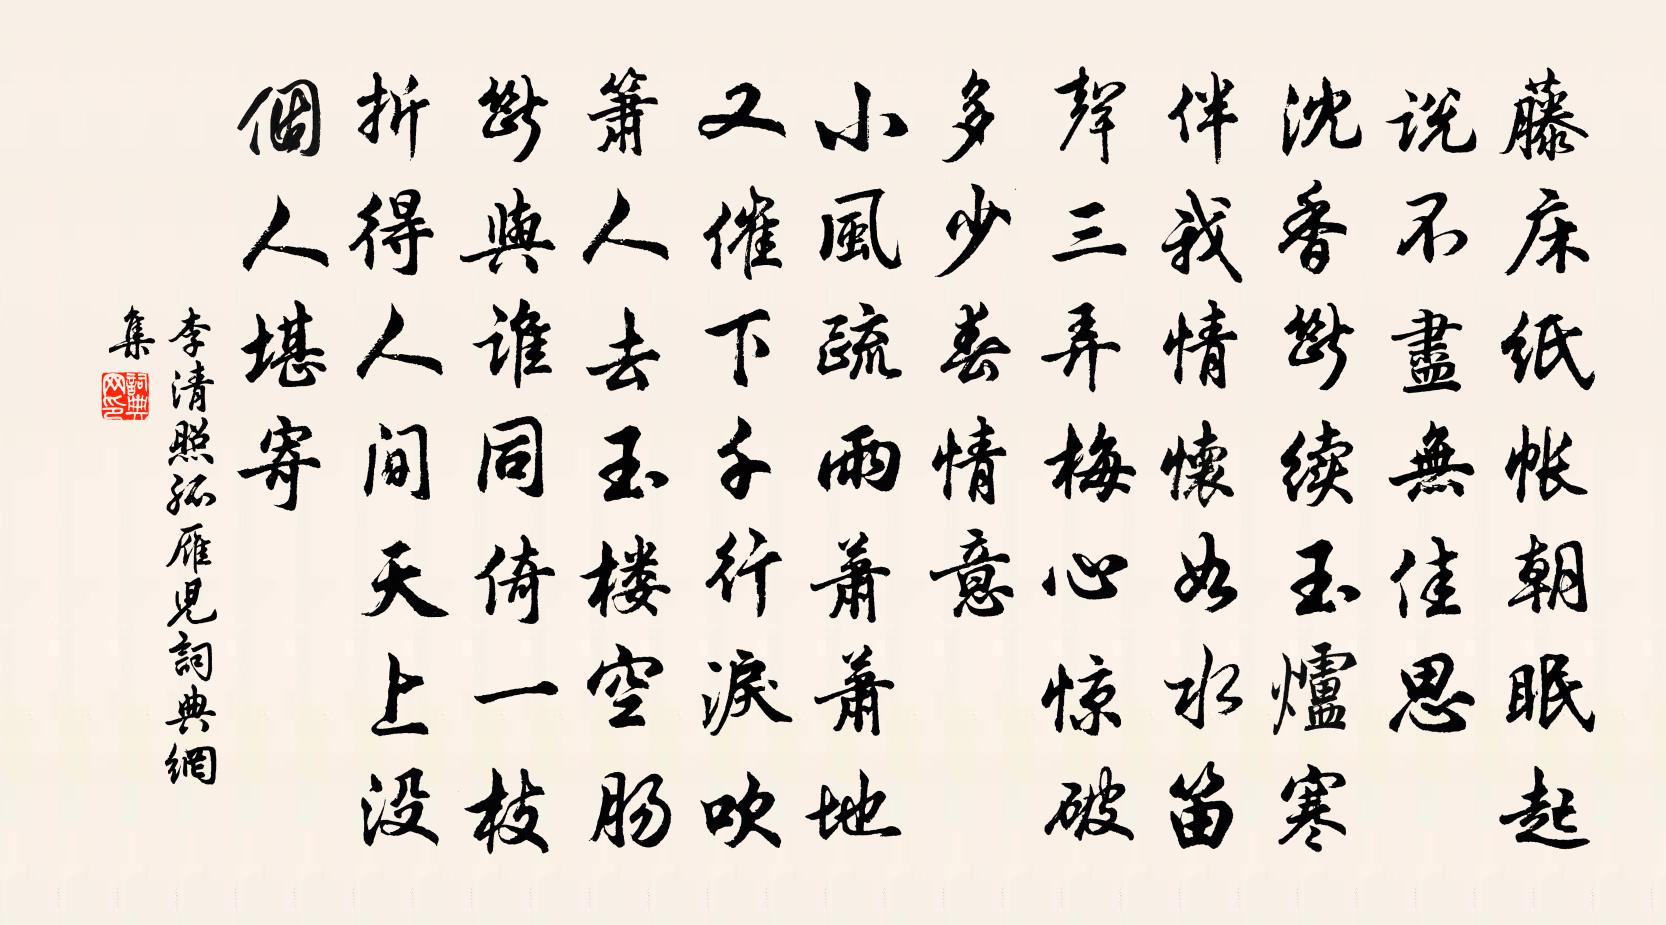 藤床紙帐朝眠起
说不盡無佳思
沈香斷续玉爐寒
伴我情懷如水笛
聲三弄梅心惊破
多少春情意
小風疏雨萧萧地
又催下千行淚吹
箫人去玉楼空肠
斷與谁同倚一枝
折得人间天上没
個人堪寄
李清照孤雁兒詞典網
集
詞典
网印